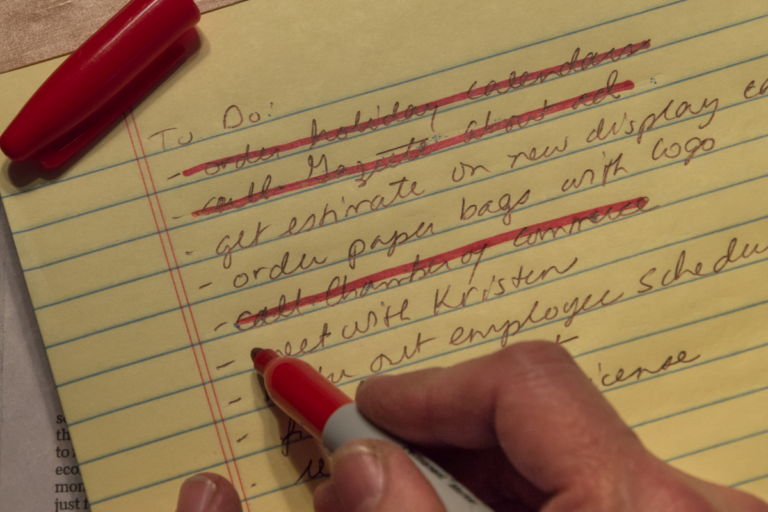 To Do:
- order holiday calendars
- call Gazette about ad
- get estimate on new display ca
- order paper bags with logo
- call Chamber of Commerce
- meet with Kristen
- out employee schedu
- icense
-